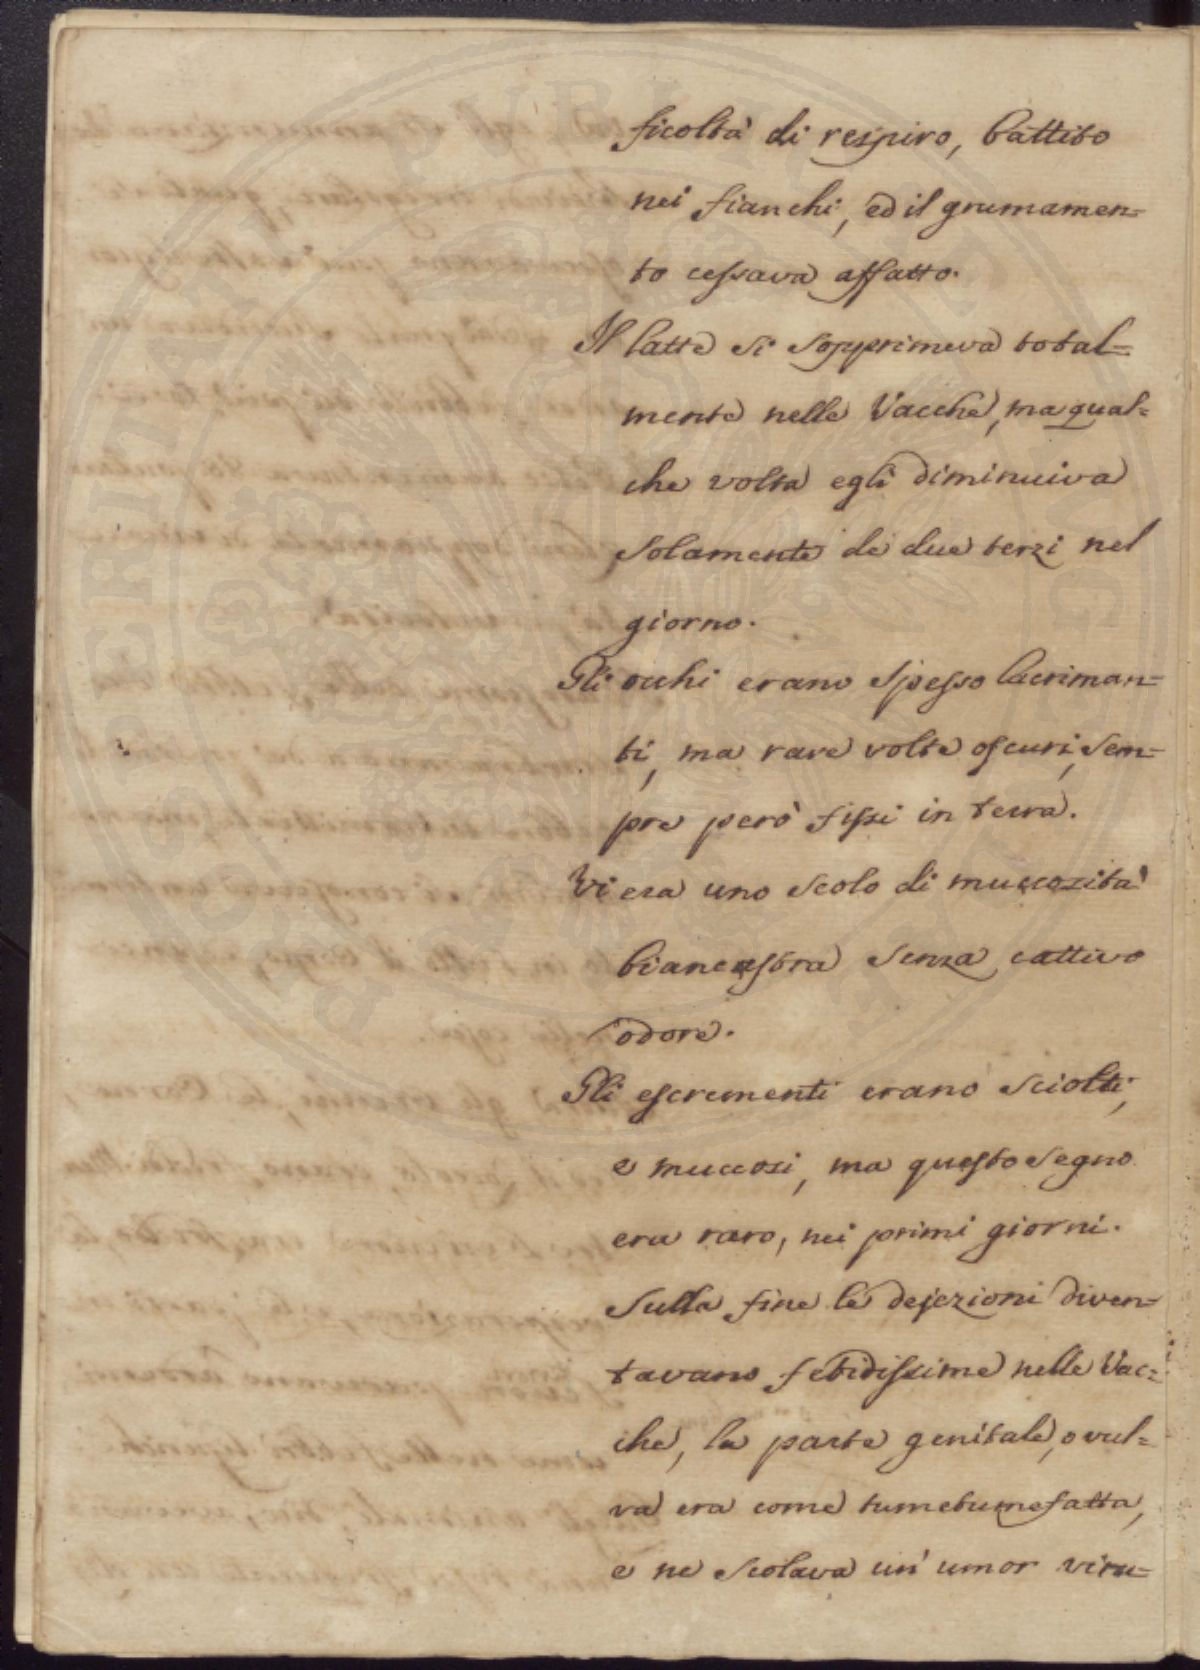 ficoltà di respiro, battito
nei fianchi, ed il grumamen=
to cessava affatto.
Il latte si sopprimeva total=
mente nelle Vacche, ma qual=
che volta egli diminuiva
solamente de due terzi nel
giorno.
Gli occhi erano spesso lacriman=
ti, ma rare volte oscuri, sem=
pre però fissi in terra.
Vi era uno scolo di muccosità
biancastra senza cattivo
odore.
Gli escrementi erano sciolti,
e muccosi, ma questo segno
era raro, nei primi giorni.
Sulla fine le dejezioni diven=
tavano fetidissime nelle Vac=
che, la parte genitale, o vul=
va era come tumetumefatta,
e ne scolava un' umor viru=